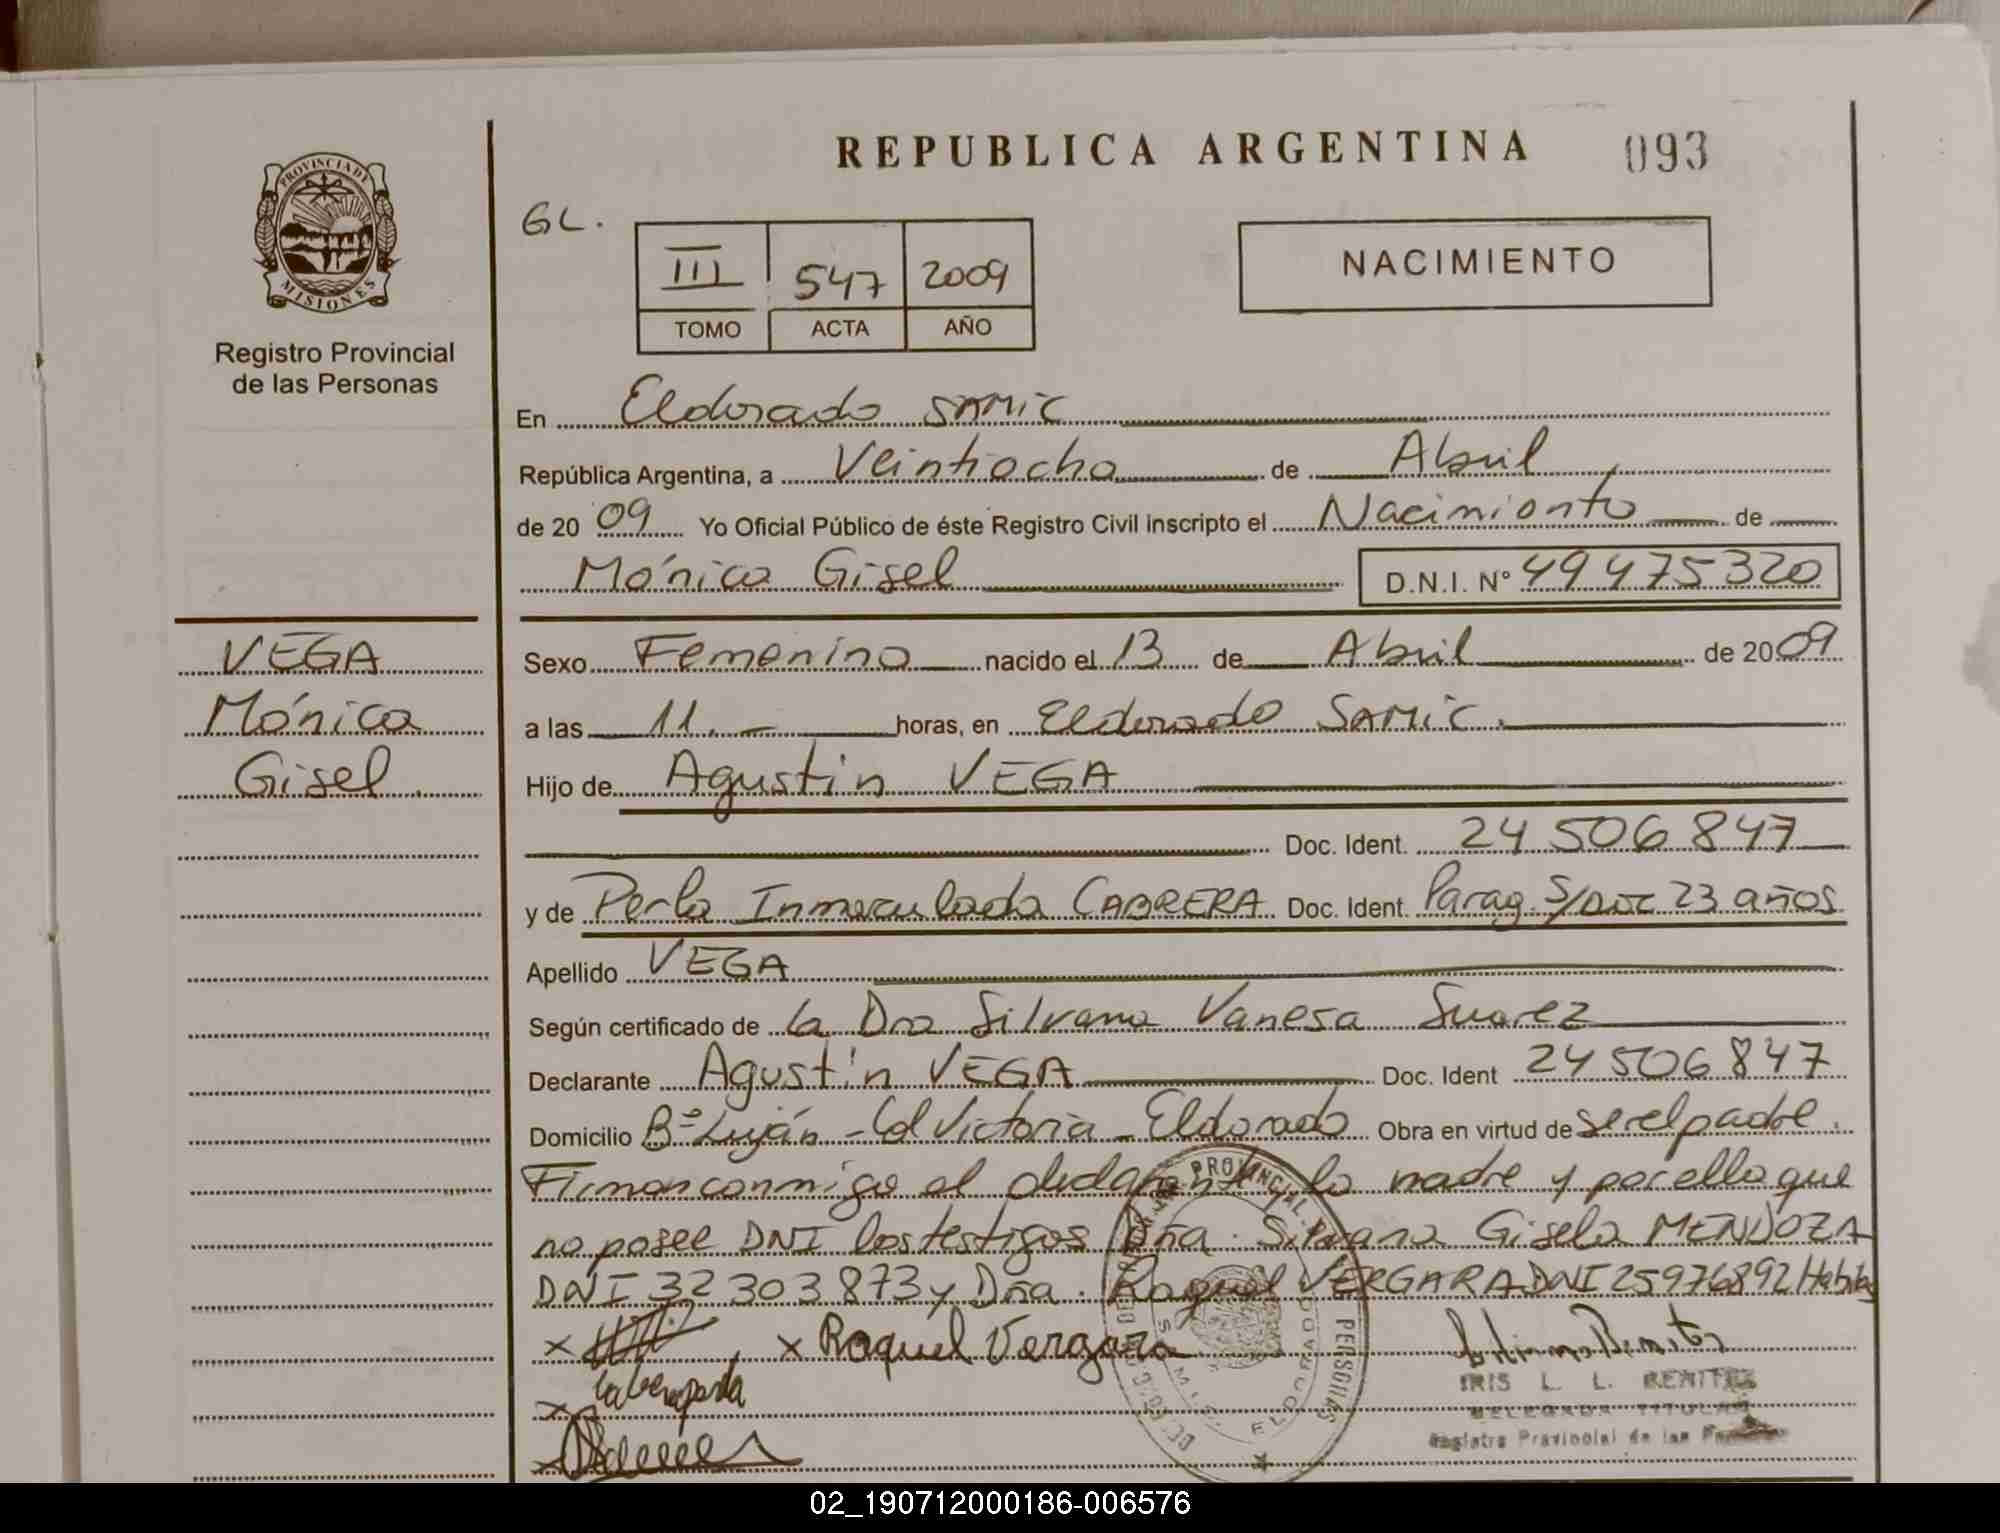 REPUBLICA ARGENTINA 093
PROVINCIA DE
MISIONES
Registro Provincial
de las Personas
GL.
III 547 2009
TOMO ACTA AÑO
NACIMIENTO
En Eldorado SAMIC
República Argentina, a Veintiocho de Abril
de 20 09 Yo Oficial Público de éste Registro Civil inscripto el Nacimiento de
Mónica Gisel D.N.I. Nº 49475320
VEGA
Mónica
Gisel.
Sexo Femenino nacido el 13 de Abril de 2009
a las 11.- horas, en Eldorado SAMIC.
Hijo de Agustin VEGA
Doc. Ident. 24 506 847
y de Perla Inmaculada CABRERA Doc. Ident. Parag. S/Doc 23 años
Apellido VEGA
Según certificado de la Dra Silvana Vanesa Suarez
Declarante Agustin VEGA Doc. Ident 24 506 847
Domicilio Bº Luján - Col Victoria - Eldorado Obra en virtud de ser el padre.
Firman conmigo el declarante, la madre y por ella que
no posee DNI los testigos Dña. Silvana Gisela MENDOZA
DNI 32 303 873 y Dña. Raquel VERGARA DNI 25976892
x x Raquel Vergara
x
IRIS L. L. BENITEZ
DELEGADA TITULAR
Registro Provincial de las
PROVINCIAL
PERSONAS
ELDORADO
02_190712000186-006576